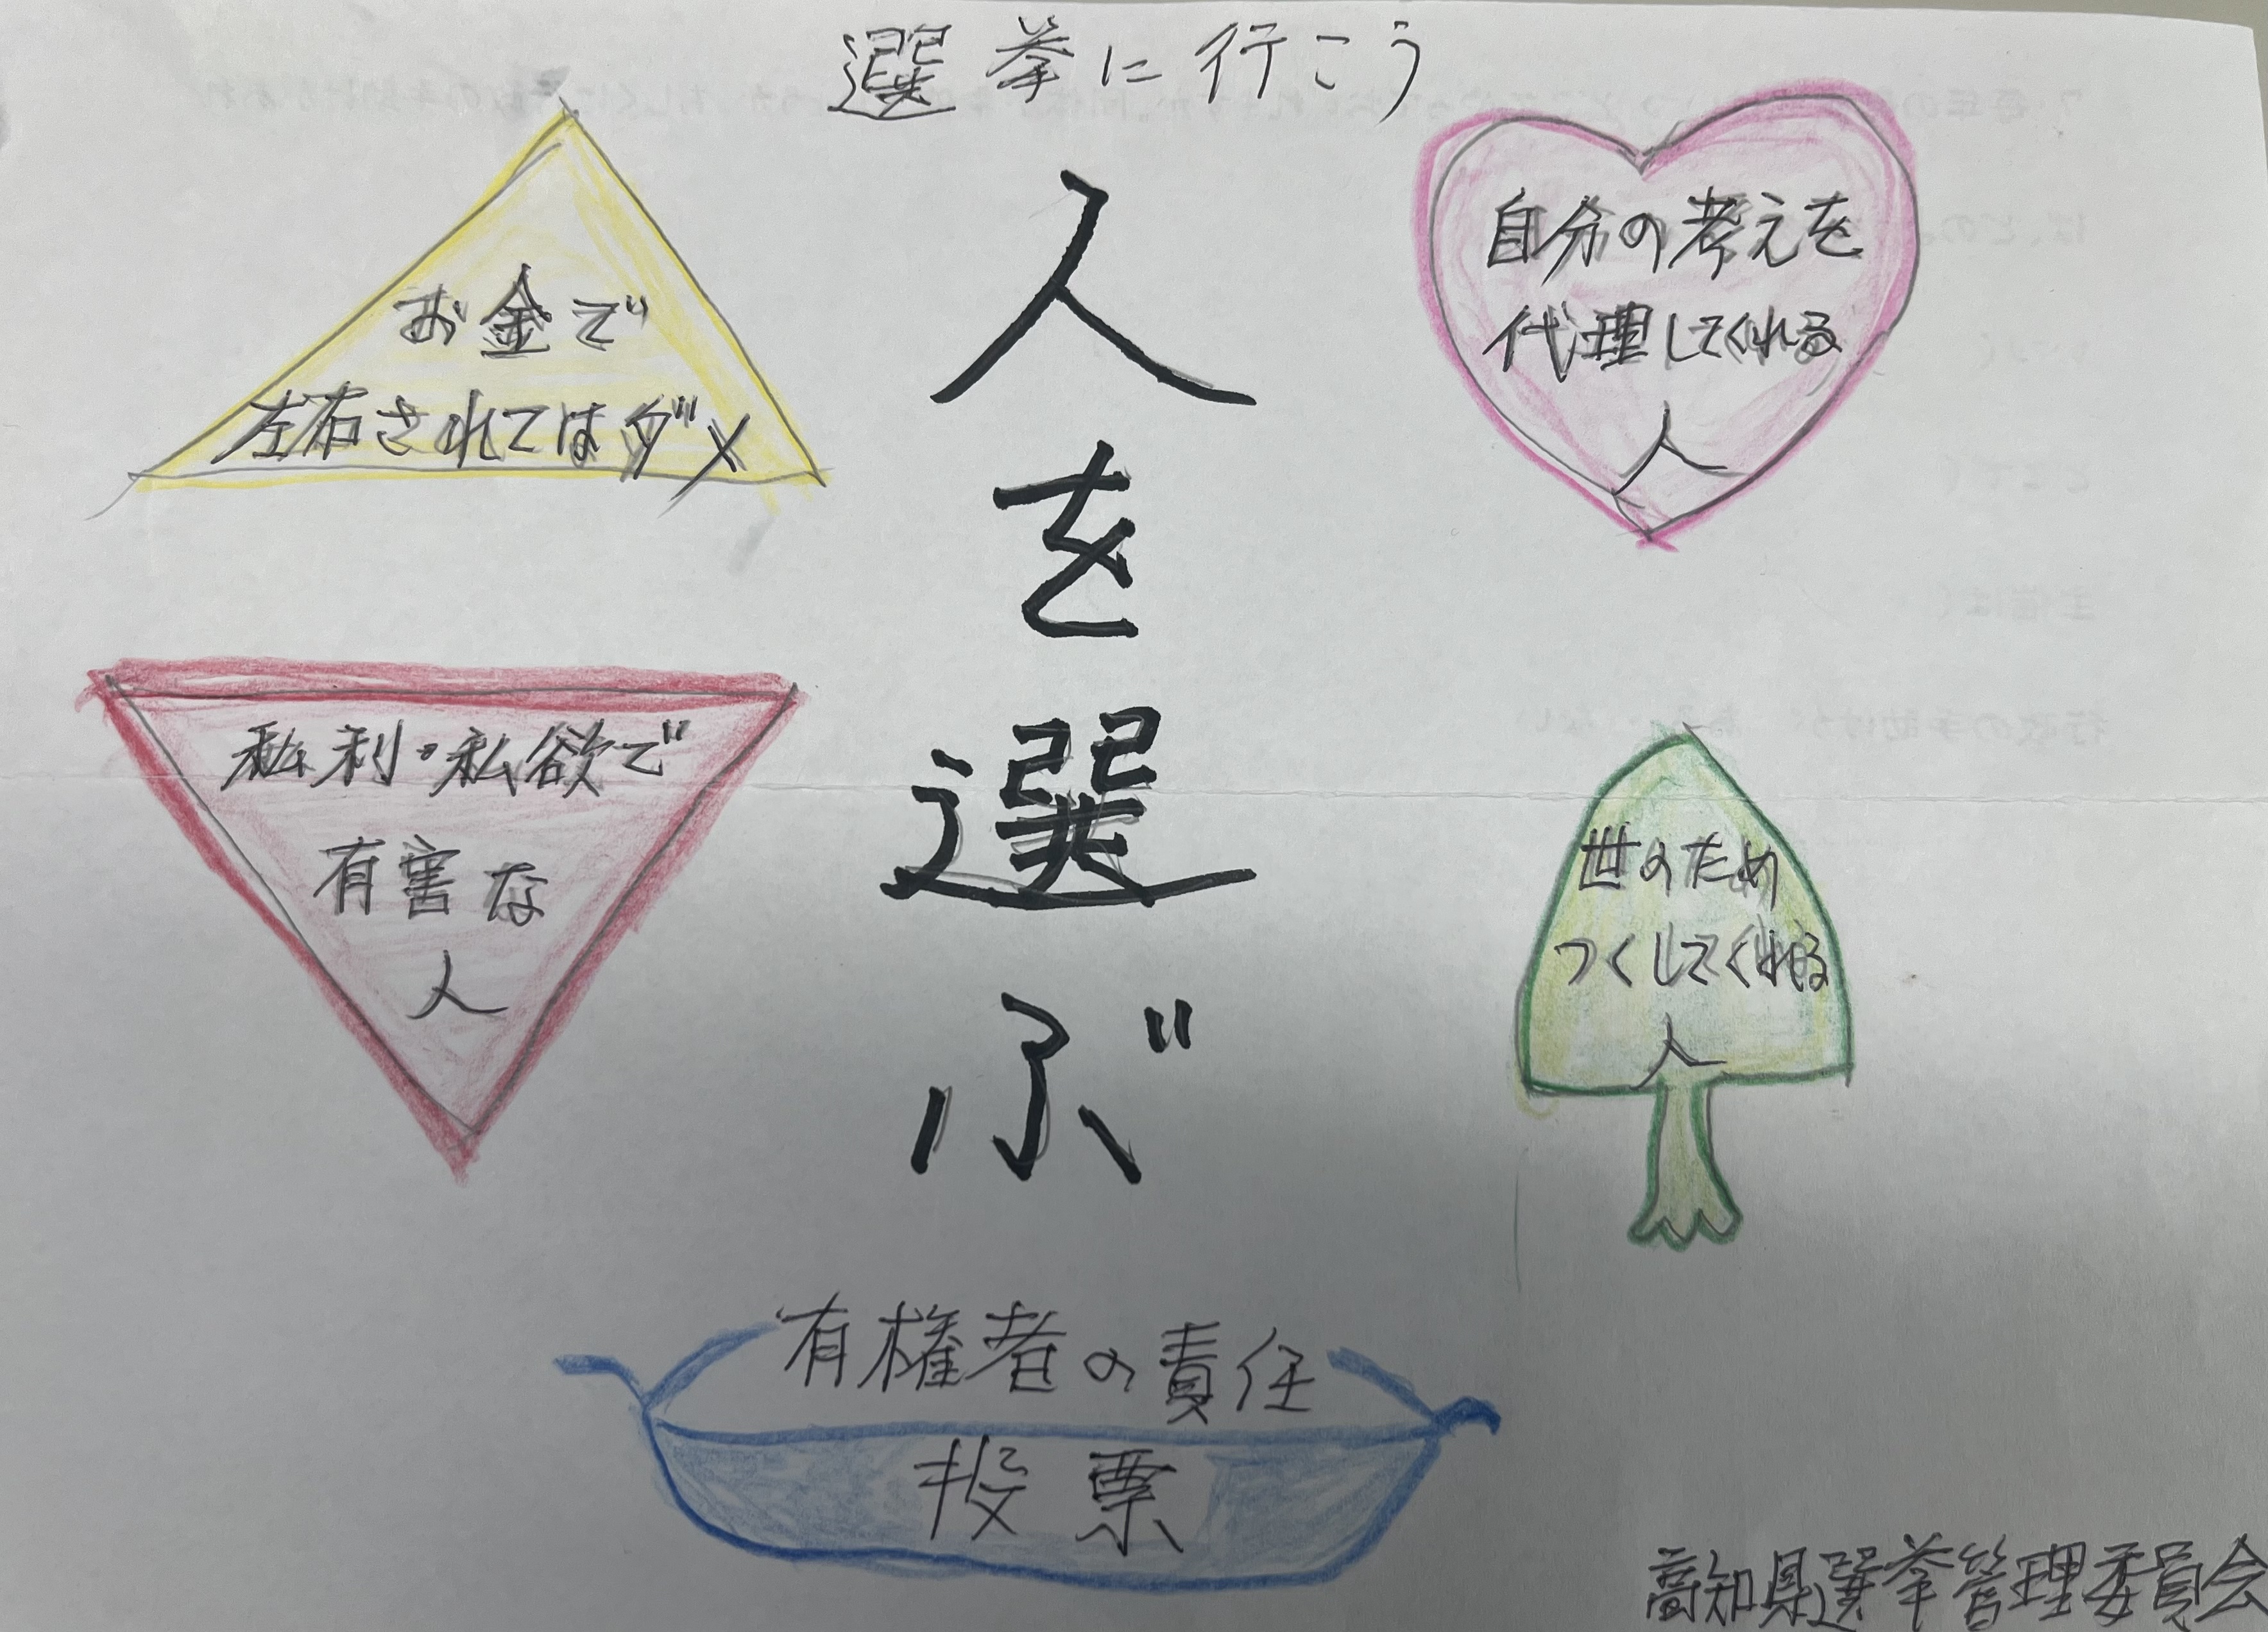 選挙に行こう
人を選ぶ
自分の考えを
代理してくれる
人
お金で
左右されてはダメ
私利・私欲で
有害な
人
世のため
つくしてくれる
人
有権者の責任
投票
高知県選挙管理委員会